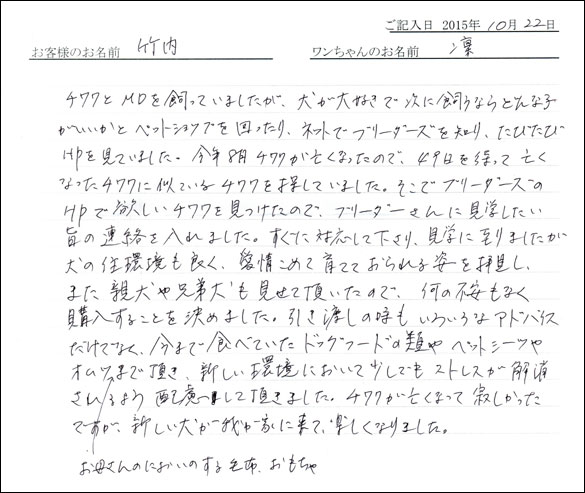 ご記入日 2015年 10月 22日
お客様のお名前 竹内 ワンちゃんのお名前 凛
チワワとMDを飼っていましたが、犬が大好きで次に飼うならどんな子
がいいかとペットショップを回ったり、ネットでブリーダーズを知り、たびたび
HPを見ていました。今年8月チワワが亡くなったので、49日を待って亡く
なったチワワに似ているチワワを探していました。そこでブリーダーズの
HPで欲しいチワワを見つけたので、ブリーダーさんに見学したい
旨の連絡を入れました。すぐに対応して下さり、見学に至りましたが
犬の住環境も良く、愛情こめて育てておられる姿を拝見し、
また親犬や兄弟犬も見せて頂いたので、何の不安もなく
購入することを決めました。引き渡しの時もいろいろなアドバイス
だけでなく、今まで食べていたドッグフードの類やペットシーツや
オムツまで頂き、新しい環境において少しでもストレスが解消
されるよう配慮して頂きました。チワワが亡くなって寂しかった
ですが、新しい犬が我が家に来て、楽しくなりました。
お母さんのにおいのする毛布、おもちゃ